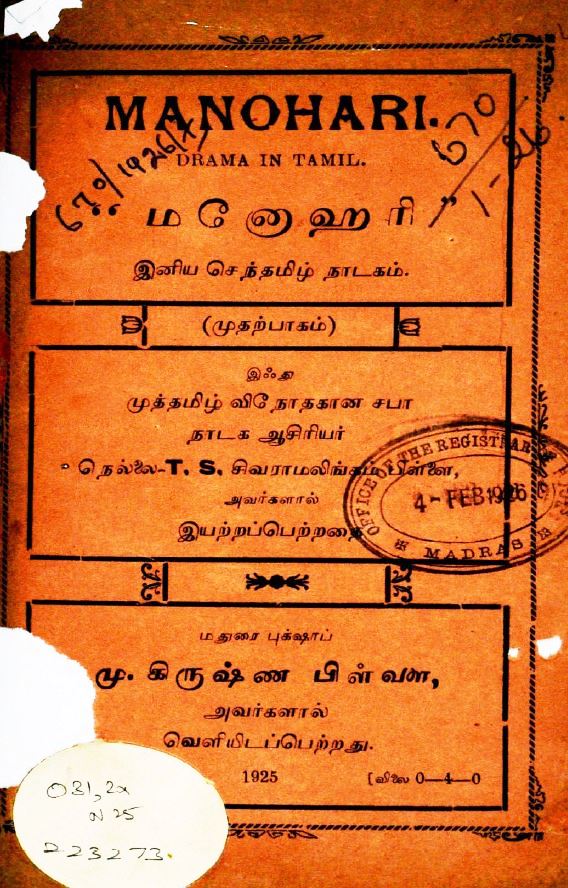 MANOHARI.
DRAMA IN TAMIL.
670/1926
670
1-26
“மனோஹரி”
இனிய செந்தமிழ் நாடகம்.
(முதற்பாகம்)
இஃது
முத்தமிழ் விநோதகான சபா
நாடக ஆசிரியர்
நெல்லை-T. S. சிவராமலிங்கம்பிள்ளை,
அவர்களால்
இயற்றப்பெற்றதை
OFFICE OF THE REGISTRAR
4- FEB 1926
MADRAS
மதுரை புக்ஷாப்
மு. கிருஷ்ண பிள்ளை,
அவர்களால்
வெளியிடப்பெற்றது.
1925 [விலை 0—4—0
O31,2x
N25
223273.